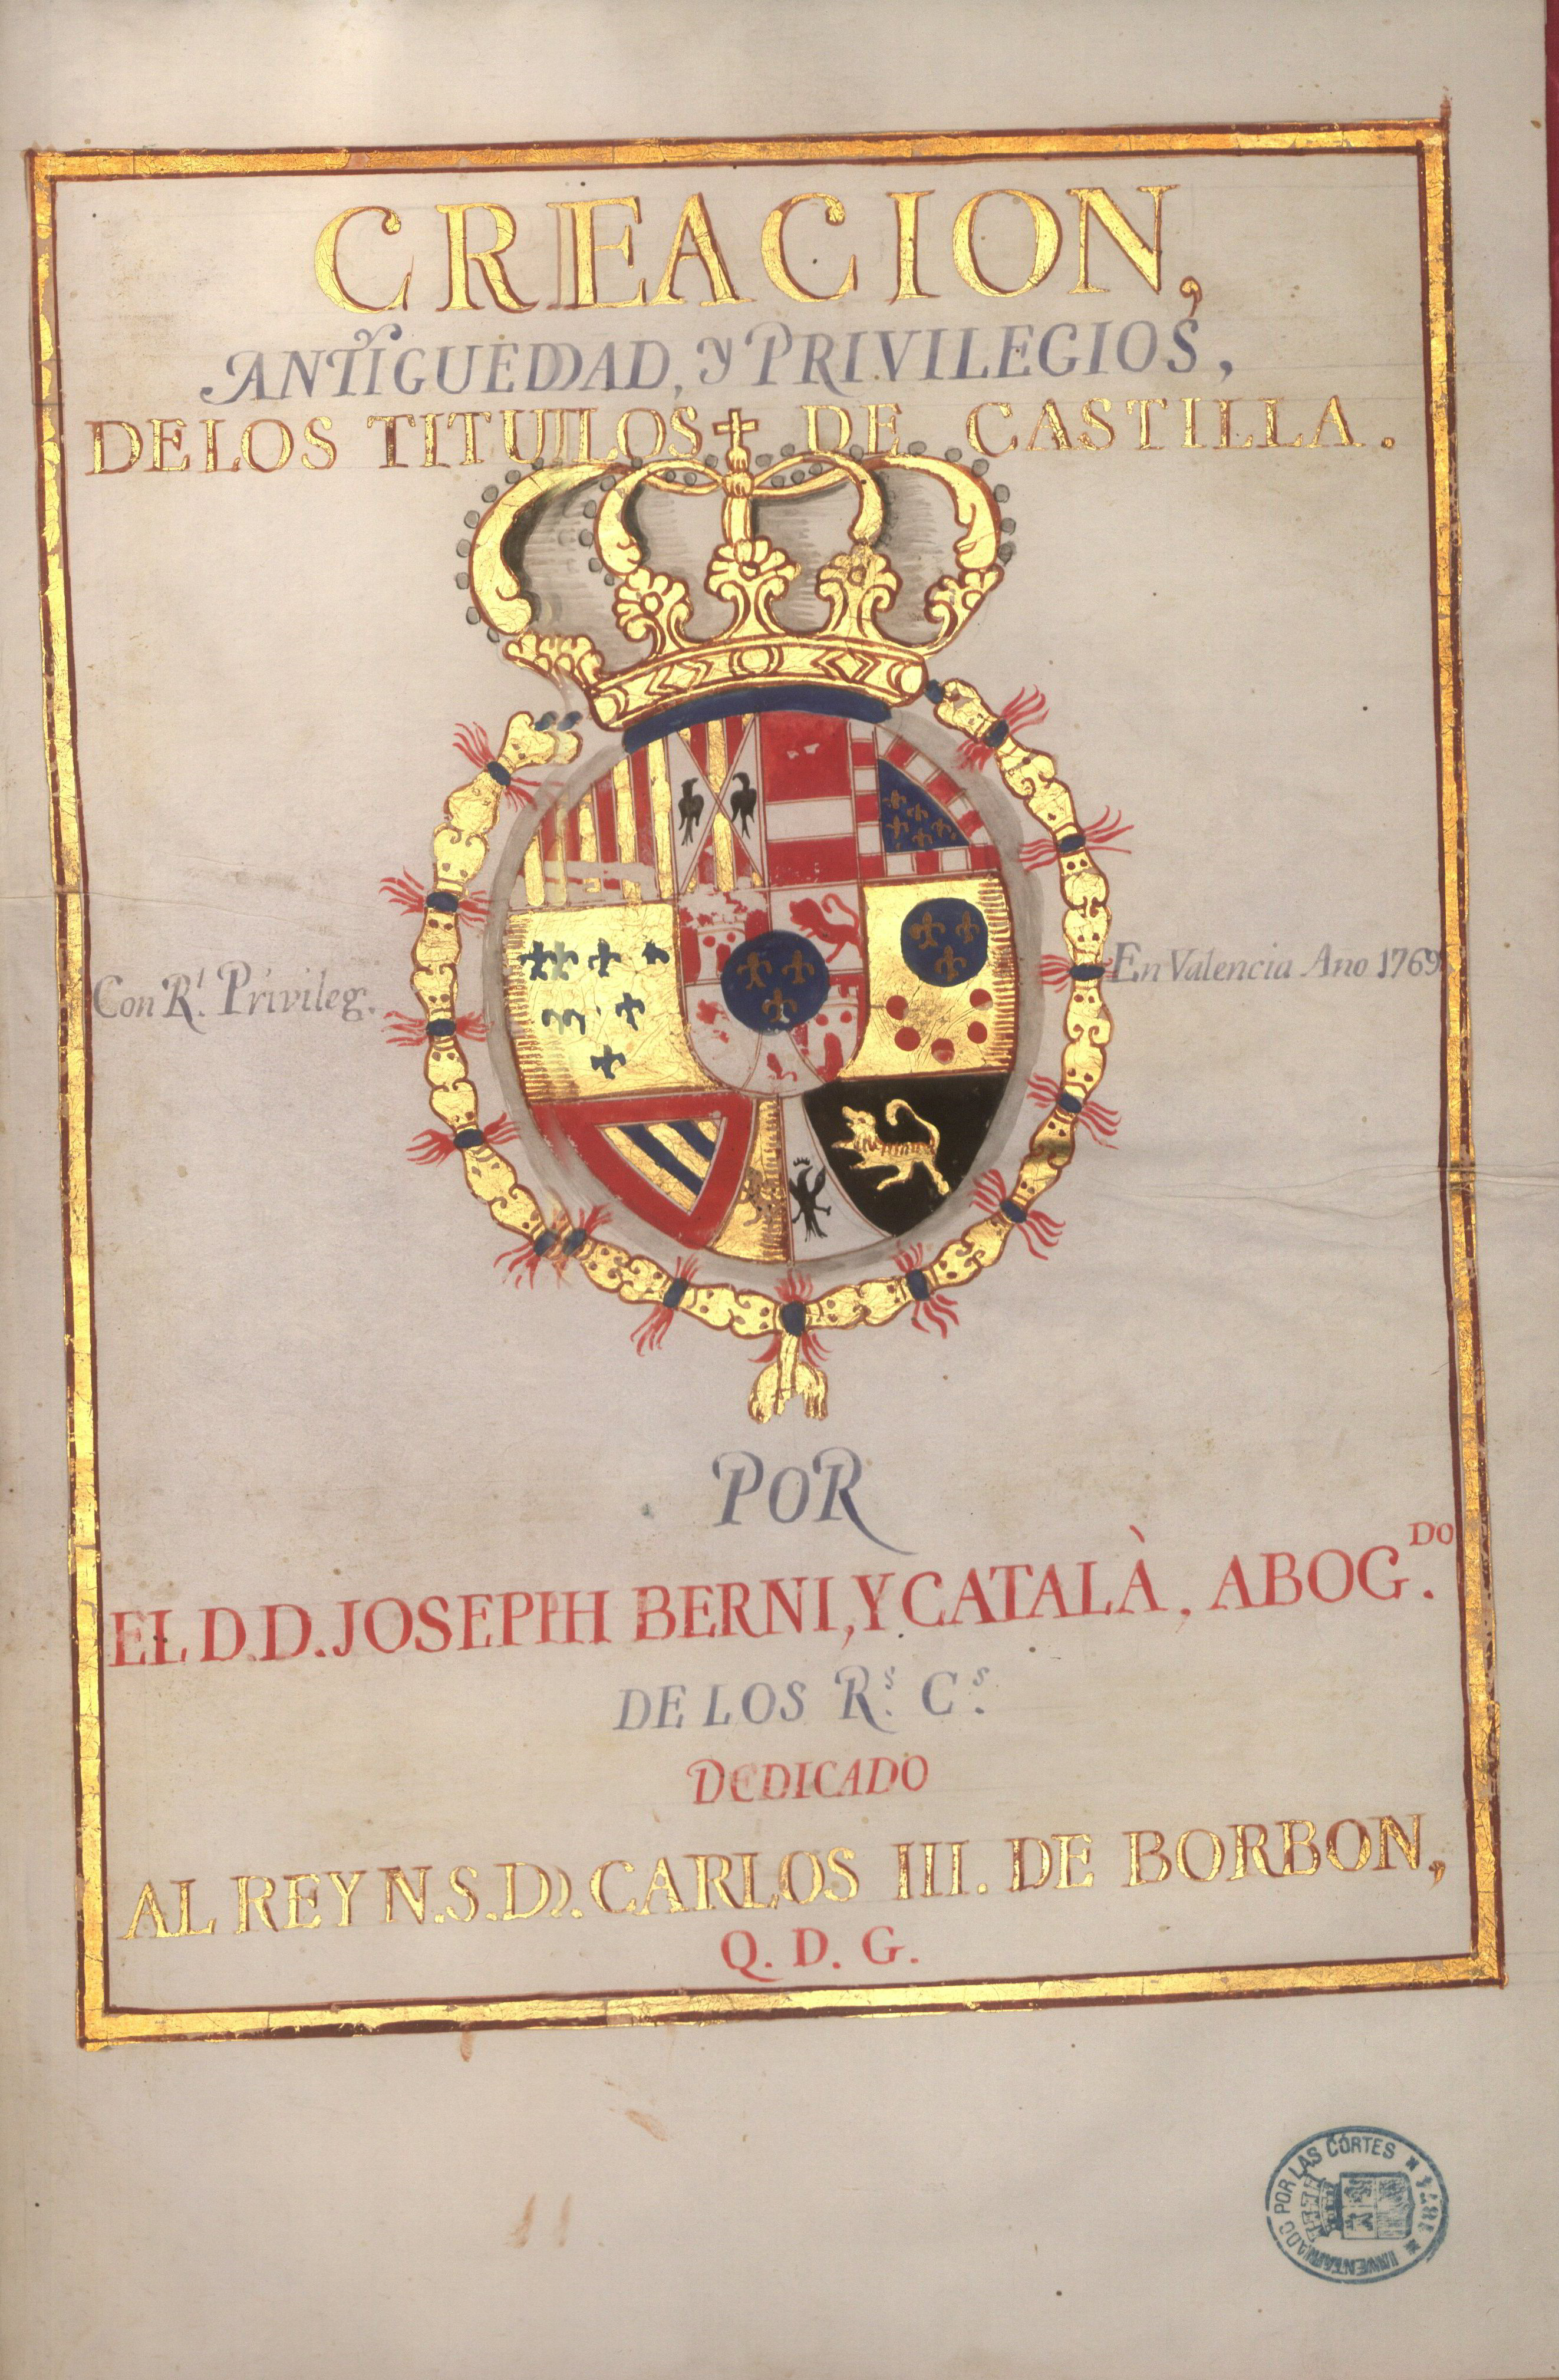 CREACION,
ANTIGUEDAD, y PRIVILEGIOS,
DE LOS TITULOS DE CASTILLA.
Con R.l Privileg.
En Valencia Ano 1769
POR
EL D.D. JOSEPH BERNI, Y CATALÀ, ABOG.DO
DE LOS R.s C.s
DEDICADO
AL REY N.S.D. CARLOS III. DE BORBON,
Q. D. G.
INVENTARIADO POR LAS CORTES
1874